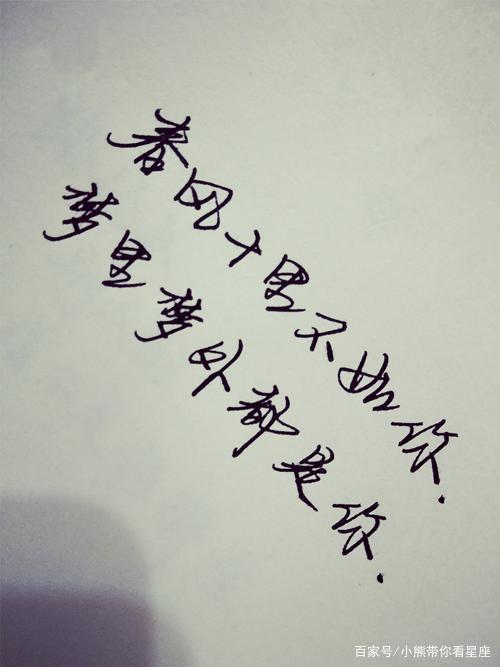 春风十里不如你.
梦里梦外都是你.
百家号/小熊带你看星座